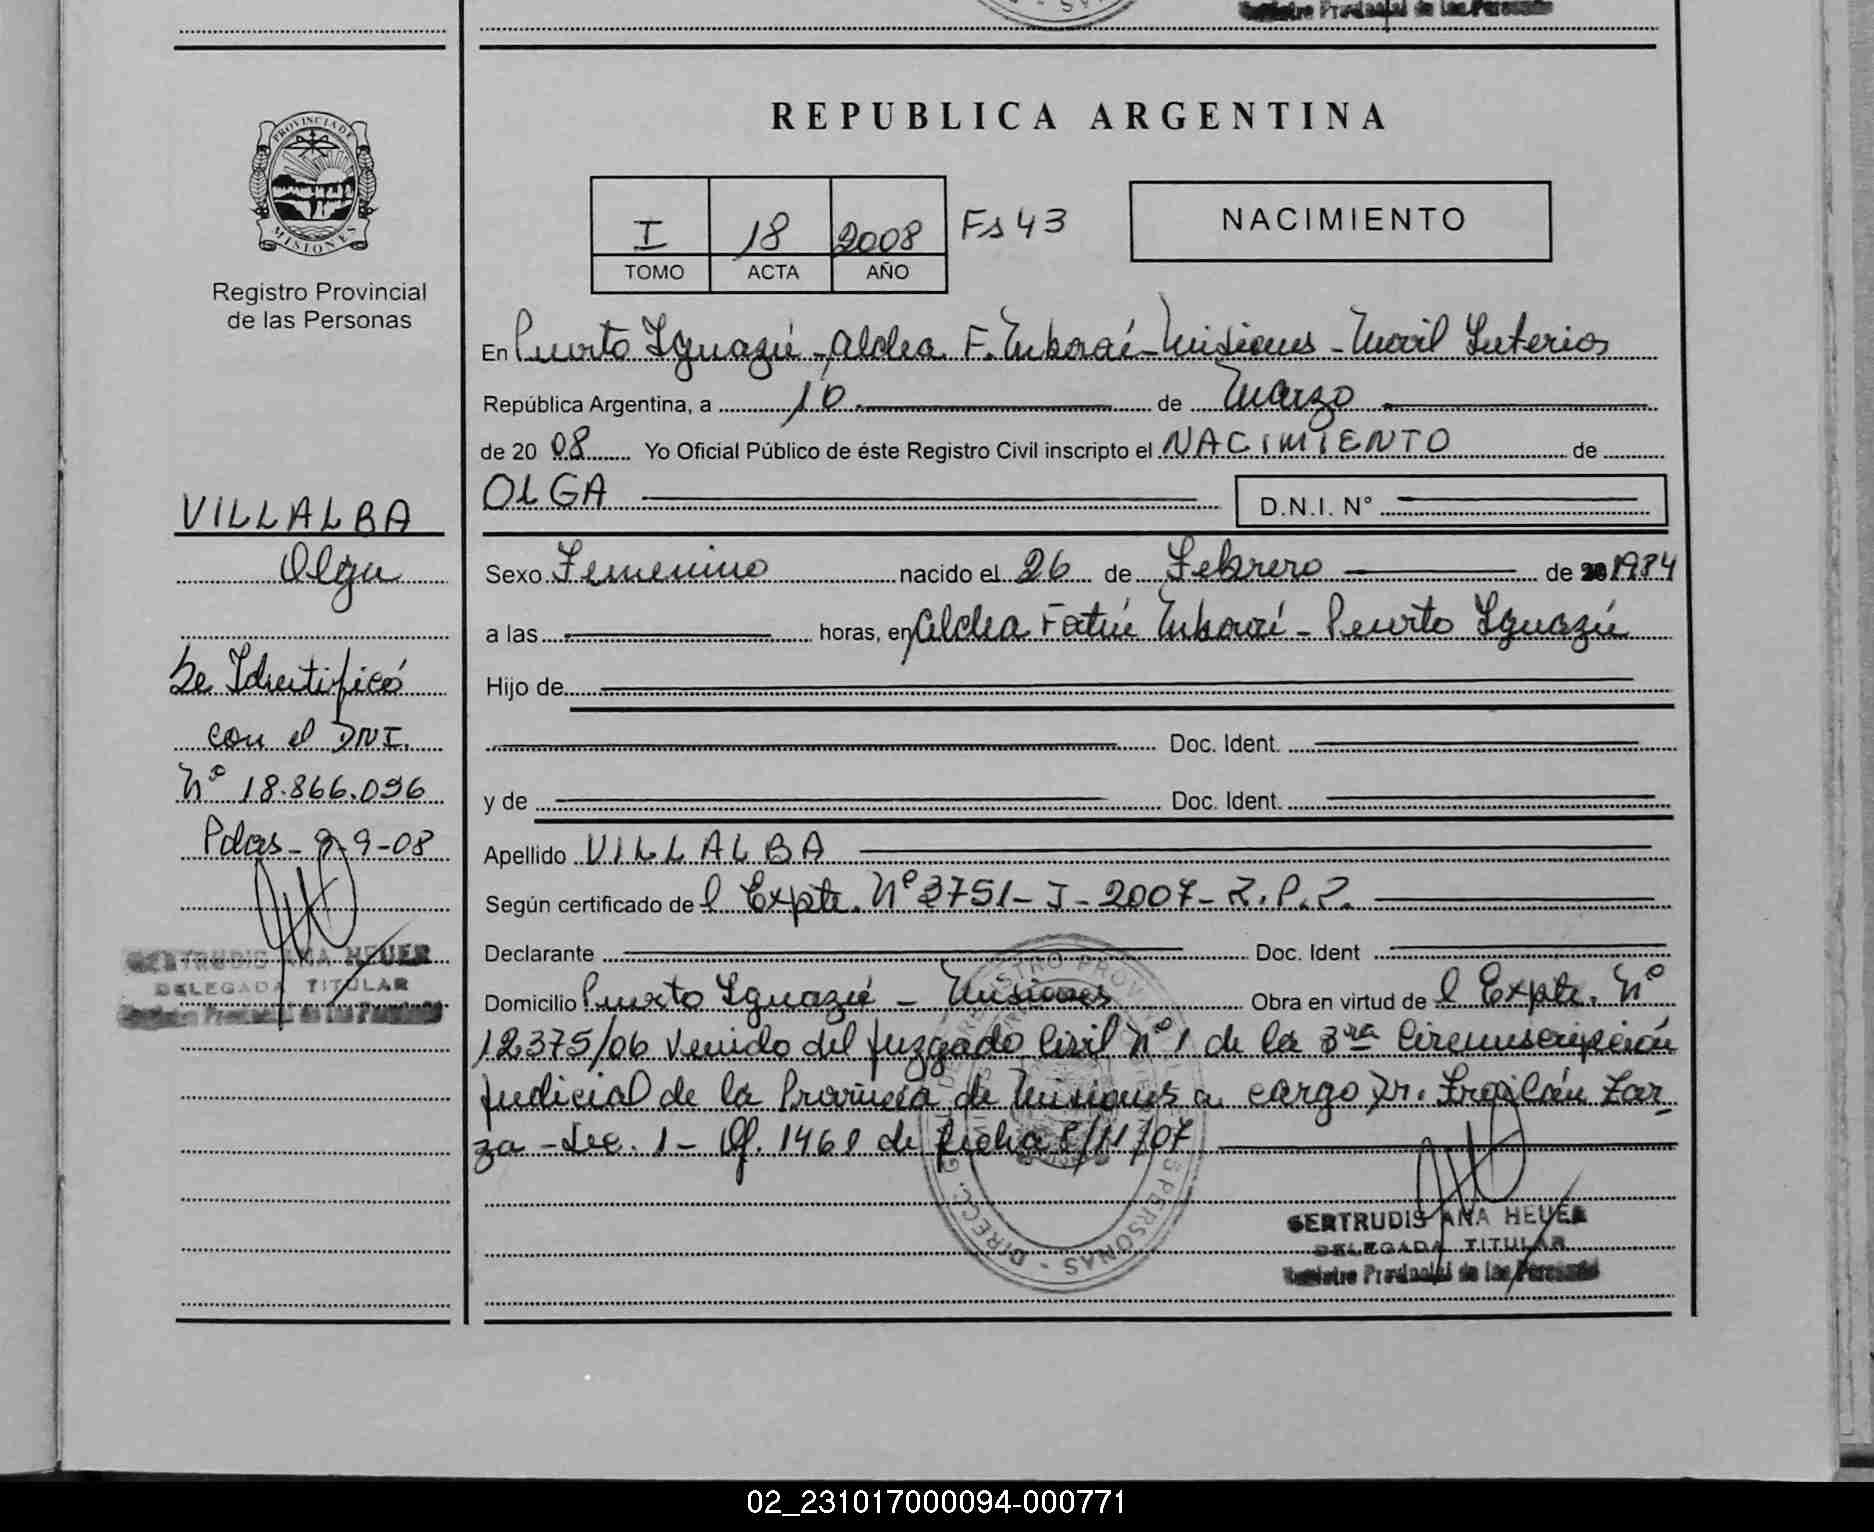 Registro Provincial de las Personas
REPUBLICA ARGENTINA
PROVINCIA DE
MISIONES
Registro Provincial
de las Personas
I 18 2008 Fs 43
TOMO ACTA AÑO
NACIMIENTO
En Puerto Iguazú - Aldea F. Mborai - Misiones - Movil Interior
República Argentina, a 10 de Marzo
de 20 08 Yo Oficial Público de éste Registro Civil inscripto el NACIMIENTO de
OLGA D.N.I. N°
VILLALBA
Olga
Se Identificó
con el DNI.
Nº 18.866.096
Pdas - 9-9-08
GERTRUDIS ANA HEUER
DELEGADA TITULAR
Registro Provincial de las Personas
Sexo Femenino nacido el 26 de Febrero de 1984
a las horas, en Aldea Fatií Mborai - Puerto Iguazú
Hijo de
Doc. Ident.
y de Doc. Ident.
Apellido VILLALBA
Según certificado de l Expte. Nº 3751-I-2007-R.P.P.
Declarante Doc. Ident
Domicilio Puerto Iguazú - Misiones Obra en virtud de l Expte. Nº
12375/06 venido del juzgado Civil Nº 1 de la 3ra Circunscripción
judicial de la Provincia de Misiones a cargo Dr. Froilán Zar-
za - Sec. 1 - Of. 1461 de fecha 8/11/07
GERTRUDIS ANA HEUER
DELEGADA TITULAR
Registro Provincial de las Personas
02_231017000094-000771